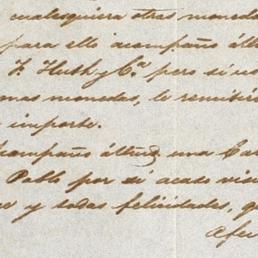 cualesquiera otras moneda
para ello acompaño á
F. Huth y Cª. pero si no
nas monedas, le remitir
importe.
compaño á una Car
Pablo por si acaso vis
y todas felicidades, q
Afec